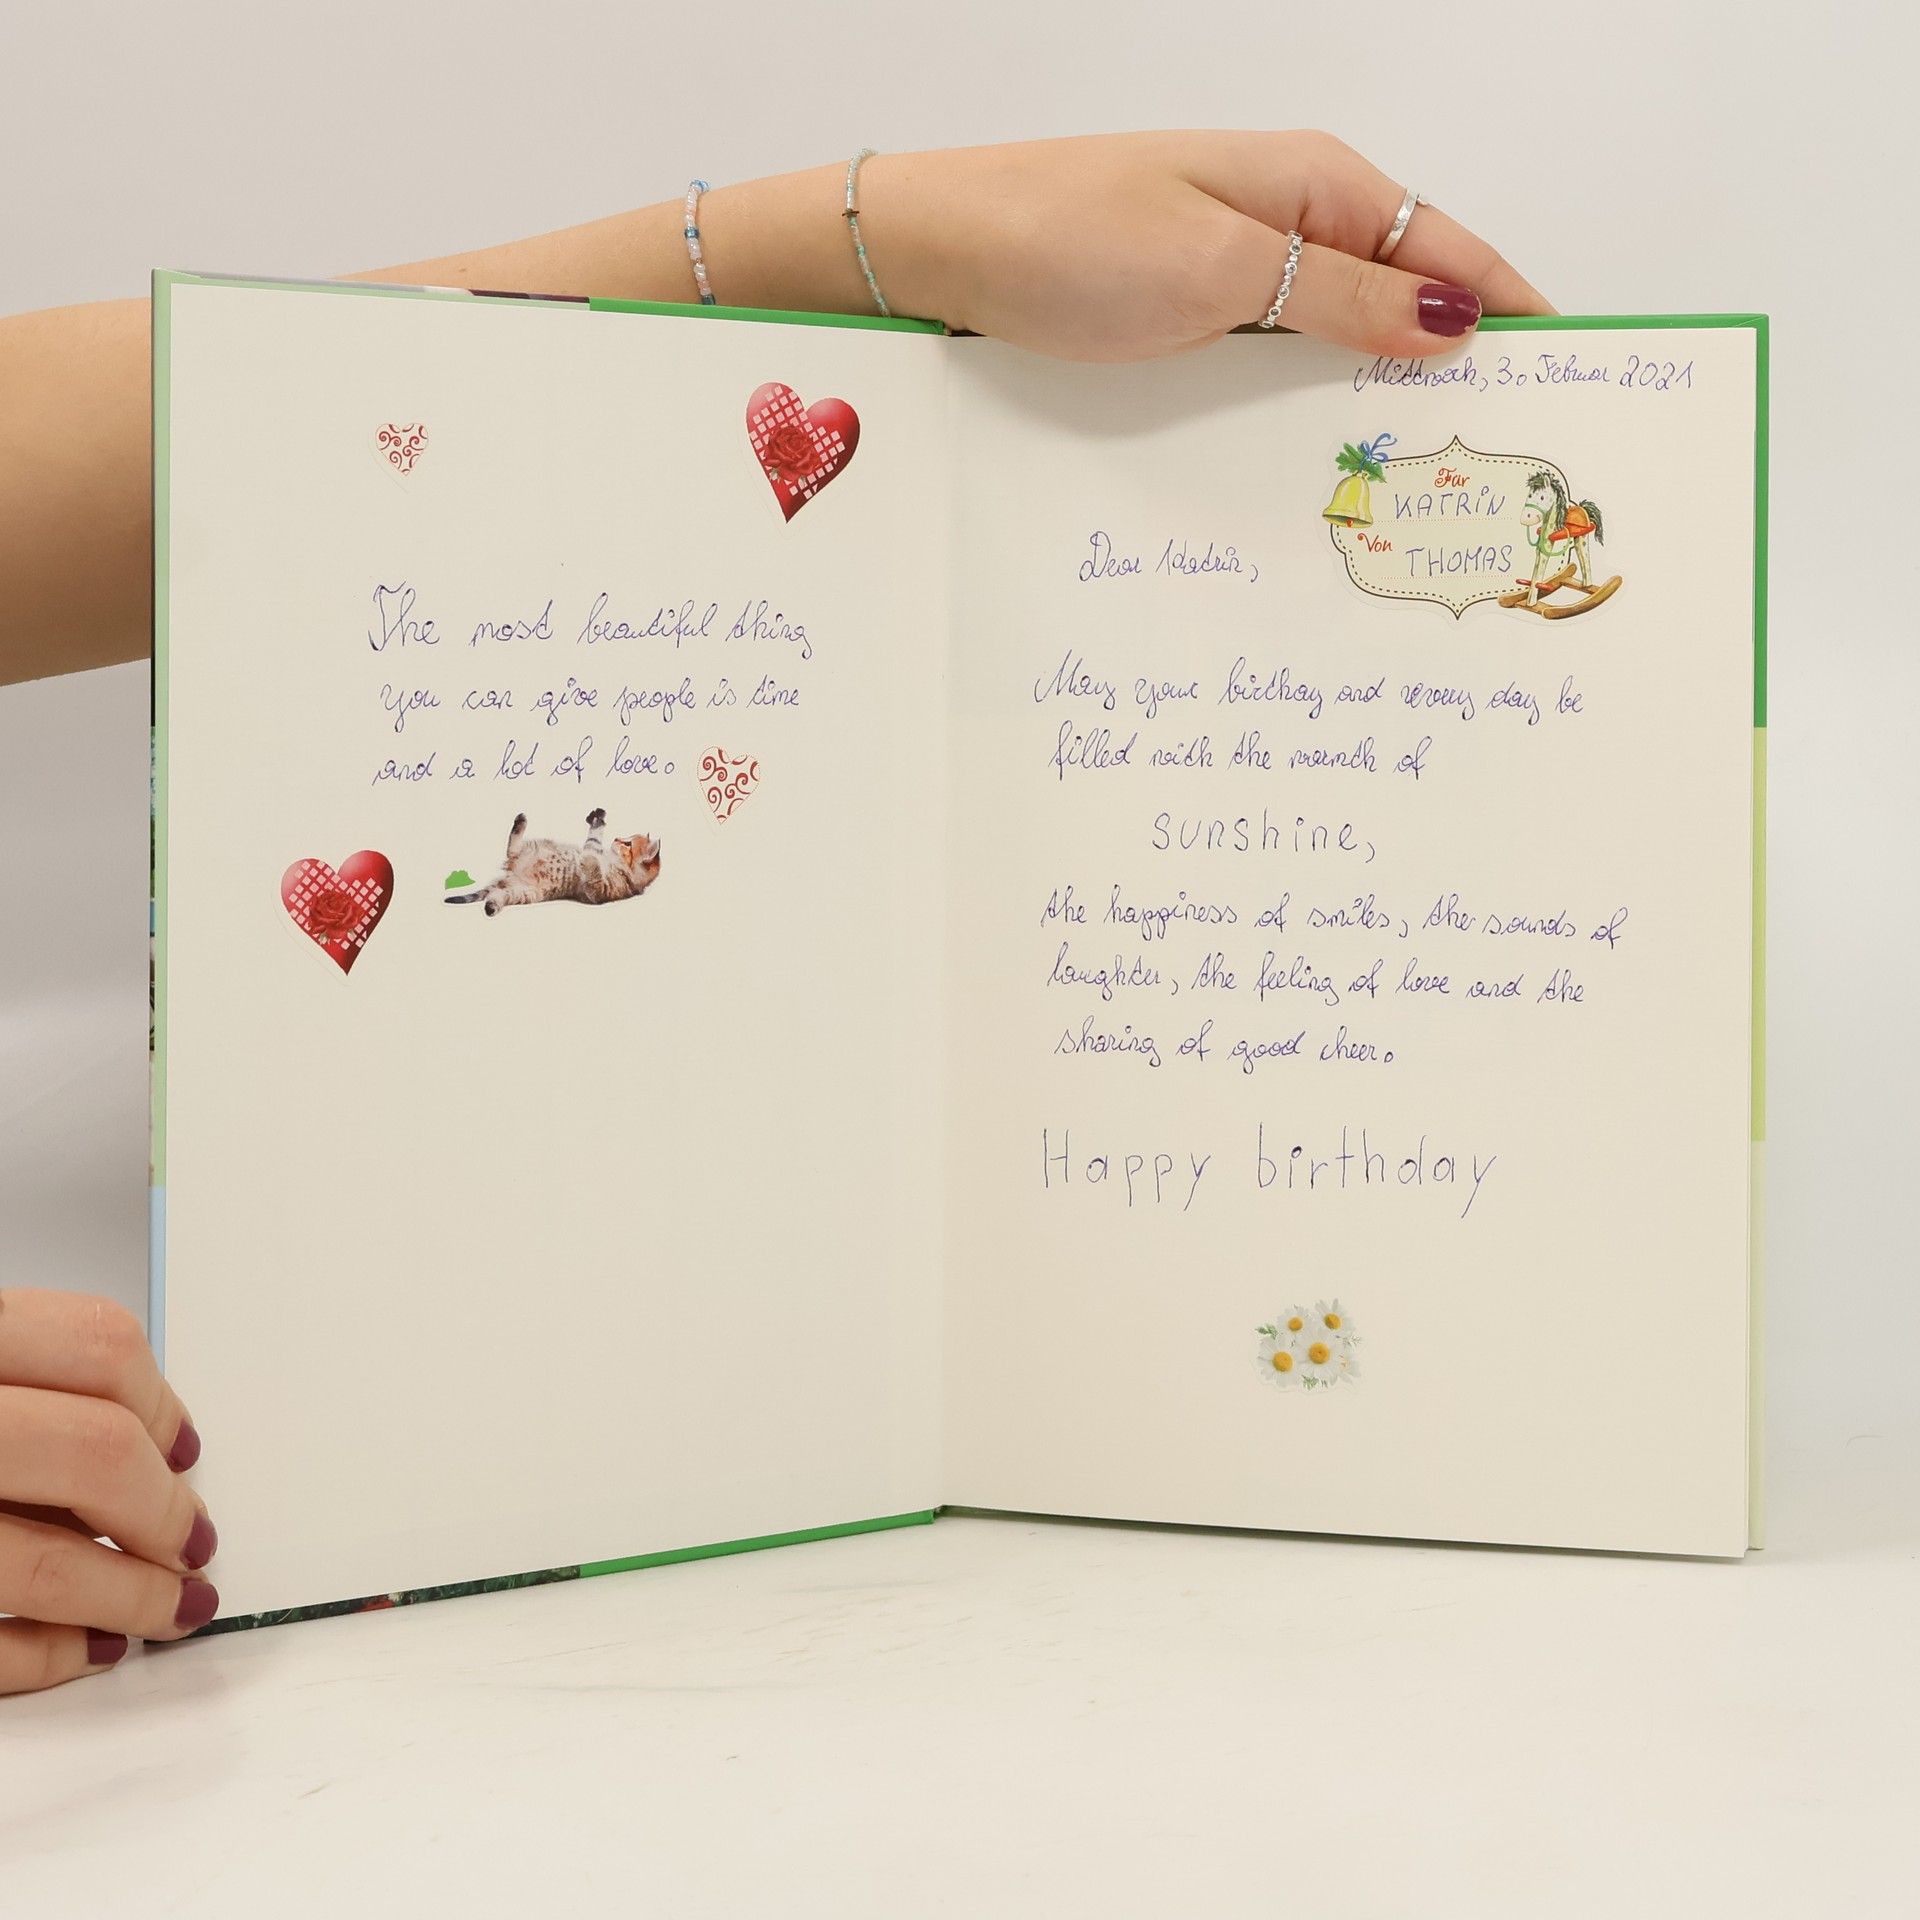 The most beautiful thing
you can give people is time
and a lot of love.
Mittwoch, 3. Februar 2021
Für
KATRIN
Von
THOMAS
Dear Katrin,
May your birthay and every day be
filled with the warmth of
sunshine,
the happiness of smiles, the sounds of
laughter, the feeling of love and the
sharing of good cheer.
Happy birthday